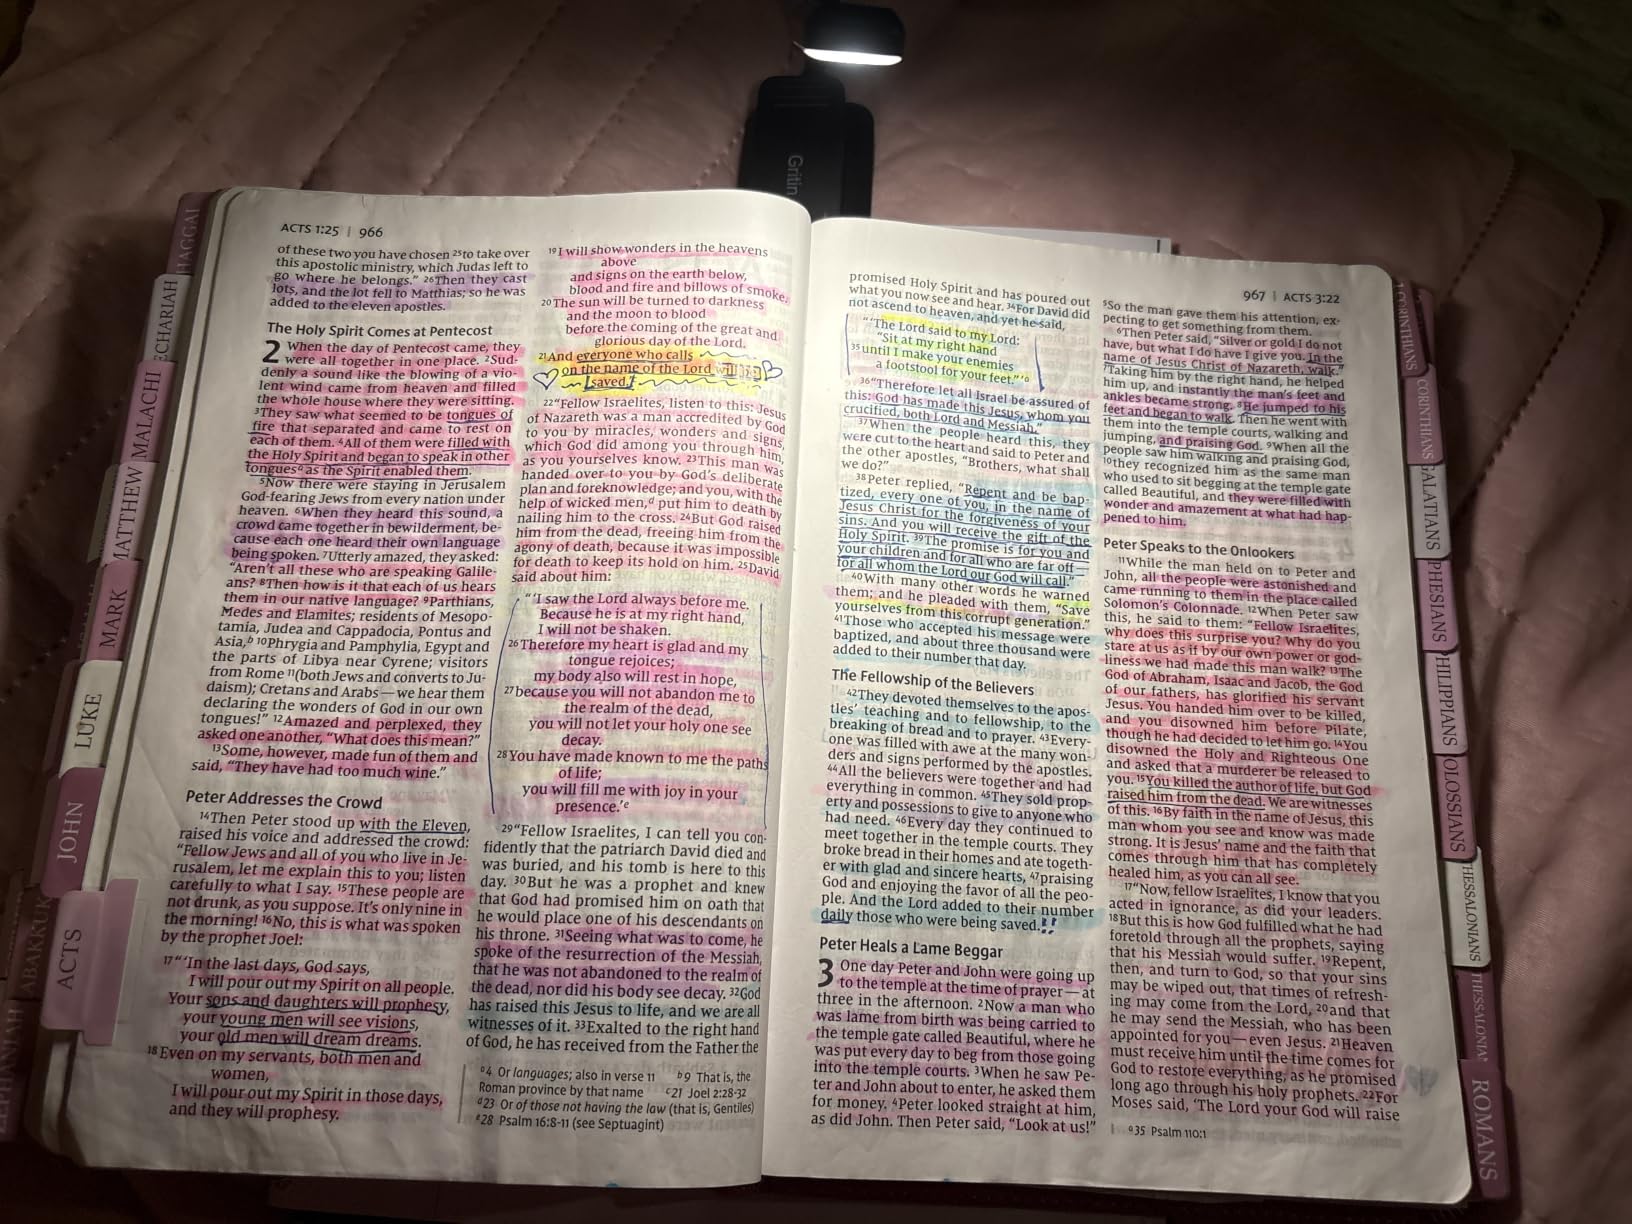 Gritin
ACTS 1:25 | 966
of these two you have chosen 25to take over
this apostolic ministry, which Judas left to
go where he belongs." 26Then they cast
lots, and the lot fell to Matthias; so he was
added to the eleven apostles.
The Holy Spirit Comes at Pentecost
2 When the day of Pentecost came, they
were all together in one place. 2Sud-
denly a sound like the blowing of a vio-
lent wind came from heaven and filled
the whole house where they were sitting.
3They saw what seemed to be tongues of
fire that separated and came to rest on
each of them. 4All of them were filled with
the Holy Spirit and began to speak in other
tonguesa as the Spirit enabled them.
5Now there were staying in Jerusalem
God-fearing Jews from every nation under
heaven. 6When they heard this sound, a
crowd came together in bewilderment, be-
cause each one heard their own language
being spoken. 7Utterly amazed, they asked:
"Aren't all these who are speaking Galile-
ans? 8Then how is it that each of us hears
them in our native language? 9Parthians,
Medes and Elamites; residents of Mesopo-
tamia, Judea and Cappadocia, Pontus and
Asia,b 10Phrygia and Pamphylia, Egypt and
the parts of Libya near Cyrene; visitors
from Rome 11(both Jews and converts to Ju-
daism); Cretans and Arabs—we hear them
declaring the wonders of God in our own
tongues!" 12Amazed and perplexed, they
asked one another, "What does this mean?"
13Some, however, made fun of them and
said, "They have had too much wine."
Peter Addresses the Crowd
14Then Peter stood up with the Eleven,
raised his voice and addressed the crowd:
"Fellow Jews and all of you who live in Je-
rusalem, let me explain this to you; listen
carefully to what I say. 15These people are
not drunk, as you suppose. It's only nine in
the morning! 16No, this is what was spoken
by the prophet Joel:
17"'In the last days, God says,
I will pour out my Spirit on all people.
Your sons and daughters will prophesy,
your young men will see visions,
your old men will dream dreams.
18Even on my servants, both men and
women,
I will pour out my Spirit in those days,
and they will prophesy.
19I will show wonders in the heavens
above
and signs on the earth below,
blood and fire and billows of smoke.
20The sun will be turned to darkness
and the moon to blood
before the coming of the great and
glorious day of the Lord.
21And everyone who calls
on the name of the Lord will be
saved.'
22"Fellow Israelites, listen to this: Jesus
of Nazareth was a man accredited by God
to you by miracles, wonders and signs,
which God did among you through him,
as you yourselves know. 23This man was
handed over to you by God's deliberate
plan and foreknowledge; and you, with the
help of wicked men,d put him to death by
nailing him to the cross. 24But God raised
him from the dead, freeing him from the
agony of death, because it was impossible
for death to keep its hold on him. 25David
said about him:
"'I saw the Lord always before me.
Because he is at my right hand,
I will not be shaken.
26Therefore my heart is glad and my
tongue rejoices;
my body also will rest in hope,
27because you will not abandon me to
the realm of the dead,
you will not let your holy one see
decay.
28You have made known to me the paths
of life;
you will fill me with joy in your
presence.'e
29"Fellow Israelites, I can tell you con-
fidently that the patriarch David died and
was buried, and his tomb is here to this
day. 30But he was a prophet and knew
that God had promised him on oath that
he would place one of his descendants on
his throne. 31Seeing what was to come, he
spoke of the resurrection of the Messiah,
that he was not abandoned to the realm of
the dead, nor did his body see decay. 32God
has raised this Jesus to life, and we are all
witnesses of it. 33Exalted to the right hand
of God, he has received from the Father the
a4 Or languages; also in verse 11 b9 That is, the
Roman province by that name c21 Joel 2:28-32
d23 Or of those not having the law (that is, Gentiles)
e28 Psalm 16:8-11 (see Septuagint)
967 | ACTS 3:22
promised Holy Spirit and has poured out
what you now see and hear. 34For David did
not ascend to heaven, and yet he said,
"'The Lord said to my Lord:
"Sit at my right hand
35until I make your enemies
a footstool for your feet."'a
36"Therefore let all Israel be assured of
this: God has made this Jesus, whom you
crucified, both Lord and Messiah."
37When the people heard this, they
were cut to the heart and said to Peter and
the other apostles, "Brothers, what shall
we do?"
38Peter replied, "Repent and be bap-
tized, every one of you, in the name of
Jesus Christ for the forgiveness of your
sins. And you will receive the gift of the
Holy Spirit. 39The promise is for you and
your children and for all who are far off—
for all whom the Lord our God will call."
40With many other words he warned
them; and he pleaded with them, "Save
yourselves from this corrupt generation."
41Those who accepted his message were
baptized, and about three thousand were
added to their number that day.
The Fellowship of the Believers
42They devoted themselves to the apos-
tles' teaching and to fellowship, to the
breaking of bread and to prayer. 43Every-
one was filled with awe at the many won-
ders and signs performed by the apostles.
44All the believers were together and had
everything in common. 45They sold prop-
erty and possessions to give to anyone who
had need. 46Every day they continued to
meet together in the temple courts. They
broke bread in their homes and ate togeth-
er with glad and sincere hearts, 47praising
God and enjoying the favor of all the peo-
ple. And the Lord added to their number
daily those who were being saved.!!
Peter Heals a Lame Beggar
3 One day Peter and John were going up
to the temple at the time of prayer—at
three in the afternoon. 2Now a man who
was lame from birth was being carried to
the temple gate called Beautiful, where he
was put every day to beg from those going
into the temple courts. 3When he saw Pe-
ter and John about to enter, he asked them
for money. 4Peter looked straight at him,
as did John. Then Peter said, "Look at us!"
5So the man gave them his attention, ex-
pecting to get something from them.
6Then Peter said, "Silver or gold I do not
have, but what I do have I give you. In the
name of Jesus Christ of Nazareth, walk."
7Taking him by the right hand, he helped
him up, and instantly the man's feet and
ankles became strong. 8He jumped to his
feet and began to walk. Then he went with
them into the temple courts, walking and
jumping, and praising God. 9When all the
people saw him walking and praising God,
10they recognized him as the same man
who used to sit begging at the temple gate
called Beautiful, and they were filled with
wonder and amazement at what had hap-
pened to him.
Peter Speaks to the Onlookers
11While the man held on to Peter and
John, all the people were astonished and
came running to them in the place called
Solomon's Colonnade. 12When Peter saw
this, he said to them: "Fellow Israelites,
why does this surprise you? Why do you
stare at us as if by our own power or god-
liness we had made this man walk? 13The
God of Abraham, Isaac and Jacob, the God
of our fathers, has glorified his servant
Jesus. You handed him over to be killed,
and you disowned him before Pilate,
though he had decided to let him go. 14You
disowned the Holy and Righteous One
and asked that a murderer be released to
you. 15You killed the author of life, but God
raised him from the dead. We are witnesses
of this. 16By faith in the name of Jesus, this
man whom you see and know was made
strong. It is Jesus' name and the faith that
comes through him that has completely
healed him, as you can all see.
17"Now, fellow Israelites, I know that you
acted in ignorance, as did your leaders.
18But this is how God fulfilled what he had
foretold through all the prophets, saying
that his Messiah would suffer. 19Repent,
then, and turn to God, so that your sins
may be wiped out, that times of refresh-
ing may come from the Lord, 20and that
he may send the Messiah, who has been
appointed for you—even Jesus. 21Heaven
must receive him until the time comes for
God to restore everything, as he promised
long ago through his holy prophets. 22For
Moses said, 'The Lord your God will raise
a35 Psalm 110:1
HAGGAI
ECHARIAH
MALACHI
MATTHEW
MARK
LUKE
JOHN
ACTS
ABAKKUK
ZEPHANIAH
CORINTHIANS
CORINTHIANS
GALATIANS
PHESIANS
PHILIPPIANS
OLOSSIANS
HESSALONIANS
THESSALONIA
ROMANS